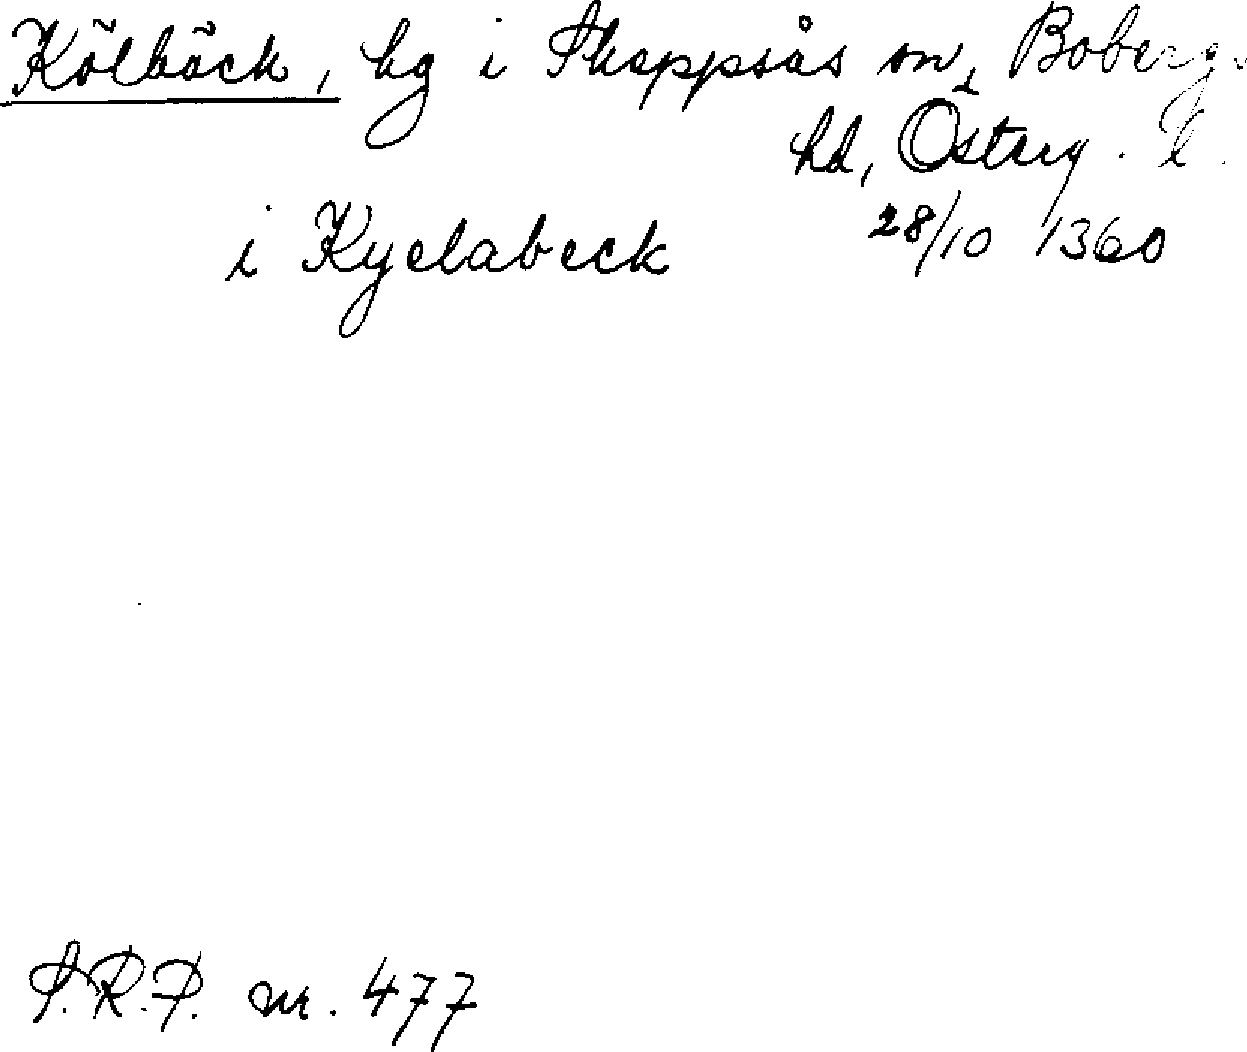 Kölbäck, hg i Skeppsås sn, Bobergs
hd, Österg. l.
i Kyelabeck 28/10 1360
S.R.P. nr. 477